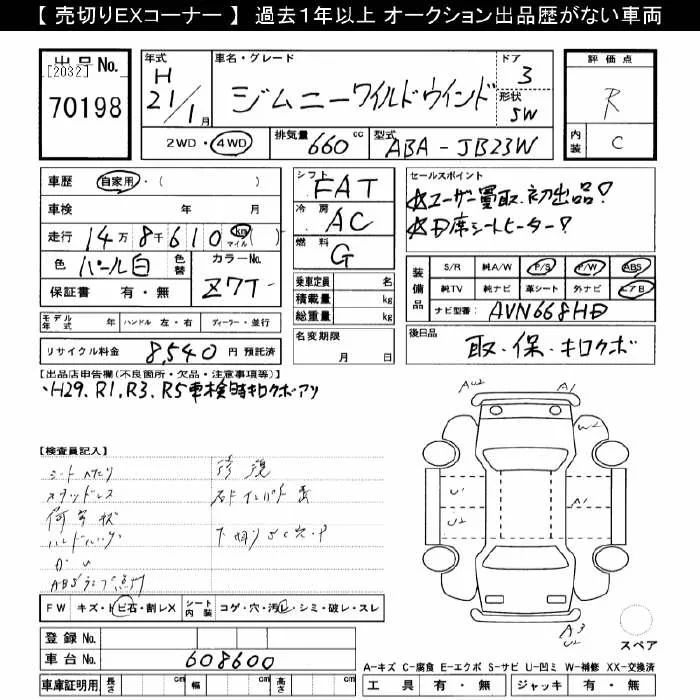 【 売切りEXコーナー 】 過去1年以上 オークション出品歴がない車両
出品No.
[2032]
70198
年式
H
21/1月
車名・グレード
ジムニーワイルドウインド
ドア
3
形状
SW
2WD・4WD
排気量 660 cc
型式 ABA-JB23W
評価点
R
内装 C
車歴 自家用・( )
車検 年 月
走行 14万8千610 km マイル ( )
色 パール白 色替 カラーNo. Z7T-
保証書 有・無
モデル年式 年 ハンドル 左・右 ディーラー・並行
リサイクル料金 8,540 円 預託済
シフト FAT
冷房 AC
燃料 G
乗車定員 名
積載量 kg
総重量 kg
名変期限
月 日
セールスポイント
☆ユーザー買取、初出品!
装備品
S/R 純A/W P/S P/W ABS
純TV 純ナビ 革シート 外ナビ エアB
ナビ型番: AVN668HD
後日品
取・保・キロクボ
【出品店申告欄(不良箇所・欠品・注意事項等)】
・H29、R1、R3、R5車検時キロクボアリ
【検査員記入】
シートヘタリ
スタッドレス
ABSランプ点灯
FW キズ・トビ石・割レX シート内装 コゲ・穴・汚レ・シミ・破レ・スレ
登録 No.
車台 No. 608600
車庫証明用 長さ cm 幅 cm 高さ cm
AW A1
W2
U1
U2
A1
A3
U2
スペア
A-キズ C-腐食 E-エクボ S-サビ U-凹ミ W-補修 XX-交換済
工具 有・無 ジャッキ 有・無